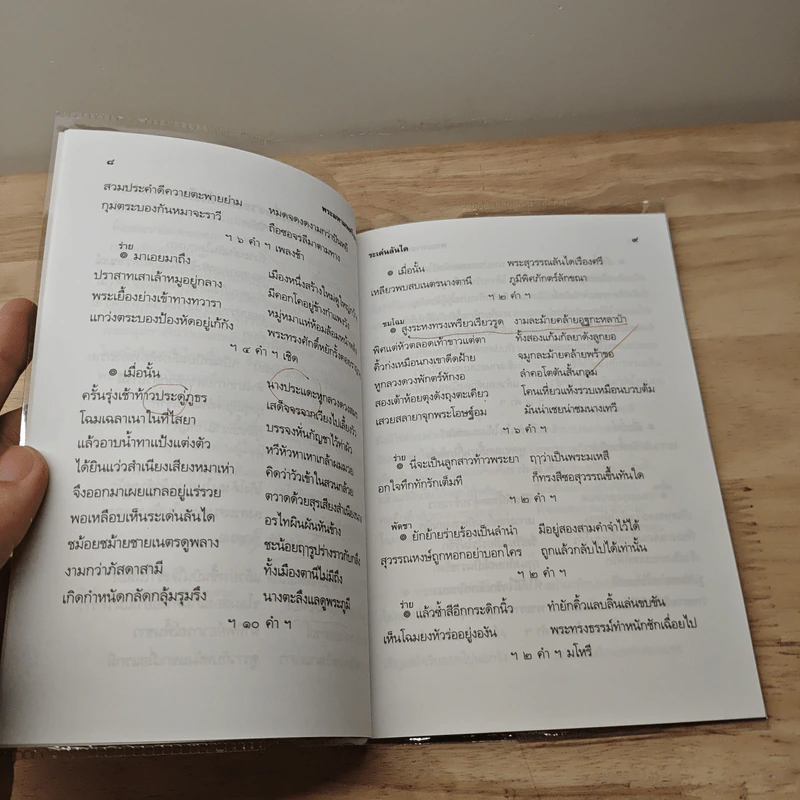 ๘
สวมประคำดีควายตะพายย่าม หมดจดงดงามกว่าปันหยี
กุมตระบองกันหมาจะราวี ถือซอจรลีมาตามทาง
ฯ ๖ คำ ฯ เพลงช้า
ร่าย
๏ มาเอยมาถึง เมืองหนึ่งสร้างใหม่ดูใหญ่กว้าง
ปราสาทเสาเล้าหมูอยู่กลาง มีคอกโคอยู่ข้างกำแพงวัง
พระเยื้องย่างเข้าทางทวารา หมู่หมาแห่ห้อมล้อมหน้าหลัง
แกว่งตระบองป้องหัตอยู่เก้กัง พระทรงศักดิ์หยักรั้งคอยราญ
ฯ ๔ คำ ฯ เชิด
๏ เมื่อนั้น นางประแดะหูกลวงดวงสมร
ครั้นรุ่งเช้าท้าวประดู่ภูธร เสด็จจรจากเวียงไปเลี้ยงวัว
โฉมเฉลาเนาในที่ไสยา บรรจงหั่นกัญชาไว้ท่าผัว
แล้วอาบน้ำทาแป้งแต่งตัว หวีหัวหาเหาเกล้าผมมวย
ได้ยินแว่วสำเนียงเสียงหมาเห่า คิดว่าวัวเข้าในสวนกล้วย
จึงออกมาเผยแกลอยู่แร่รวย ตวาดด้วยสุรเสียงสำเนียงนาง
พอเหลือบเห็นระเด่นลันได อรไทผินผันหันข้าง
ชม้อยชม้ายชายเนตรดูพลาง ชะน้อยฤารูปร่างราวกับกลึง
งามกว่าภัสดาสามี ทั้งเมืองตานีไม่มีถึง
เกิดกำหนัดกลัดกลุ้มรุมรึง นางตะลึงแลดูพระภูมี
ฯ ๑๐ คำ ฯ
ระเด่นลันได ๙
๏ เมื่อนั้น พระสุวรรณลันไดเรืองศรี
เหลียวพบสบเนตรนางตานี ภูมีพิศภักตร์ลักขณา
ฯ ๒ คำ ฯ
ชมโฉม
๏ สูงระหงทรงเพรียวเรียวรูด งามละม้ายคล้ายอูฐกะหลาป๋า
พิศแต่หัวตลอดเท้าขาวแต่ตา ทั้งสองแก้มกัลยาดังลูกยอ
คิ้วก่งเหมือนกงเขาดีดฝ้าย จมูกละม้ายคล้ายพร้าขอ
หูกลวงดวงพักตร์หักงอ ลำคอโตตันสั้นกลม
สองเต้าห้อยตุงดังถุงตะเคียว โคนเหี่ยวแห้งรวบเหมือนบวบต้ม
เสวยสลายาจุกพระโอษฐ์อม มันน่าเชยน่าชมนางเทวี
ฯ ๖ คำ ฯ
ร่าย
๏ นี่จะเป็นลูกสาวท้าวพระยา ฤๅว่าเป็นพระมเหสี
อกใจทึกทักรักเต็มที ก็ทรงสีซอสุวรรณขึ้นทันใด
ฯ ๒ คำ ฯ
พัดชา
๏ ยักย้ายร่ายร้องเป็นลำนำ มีอยู่สองสามคำจำไว้ได้
สุวรรณหงษ์ถูกหอกอย่าบอกใคร ถูกแล้วกลับไปได้เท่านั้น
ฯ ๒ คำ ฯ
ร่าย
๏ แล้วซ้ำสีอีกกระดิกนิ้ว ทำยักคิ้วแลบลิ้นเล่นขบขัน
เห็นโฉมยงหัวร่ออยู่งองัน พระทรงธรรม์ทำหนักชักเฉื่อยไป
ฯ ๒ คำ ฯ มโหรี